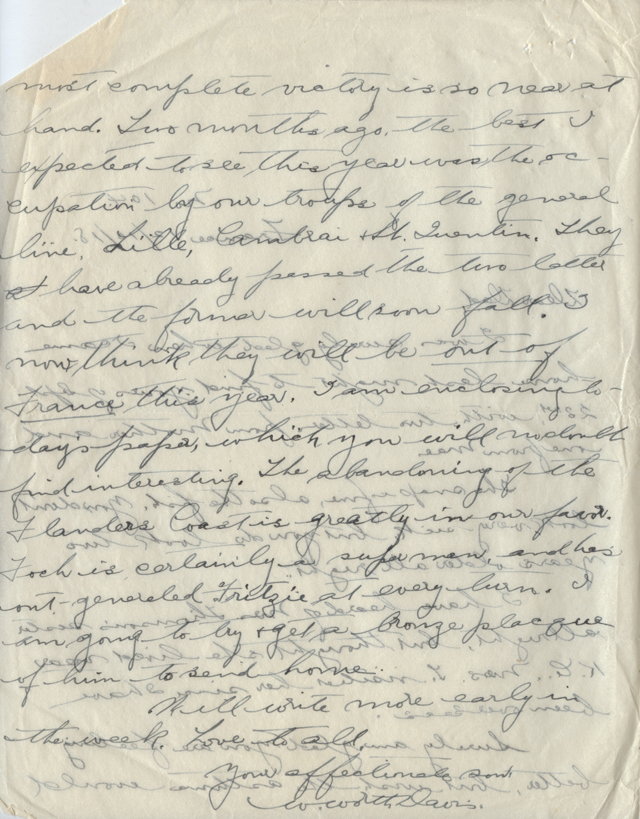 most complete victory is so near at
hand. Two months ago, the best I
expected to see this year was the oc-
cupation by our troops of the general
line, Lille, Cambrai & St. Quentin. They
have already passed the two latter
and the former will soon fall. I
now think they will be out of
France this year. I am enclosing to-
day's paper, which you will no doubt
find interesting. The abandoning of the
Flanders Coast is greatly in our favor.
Foch is certainly a super man, and has
out-generaled Fritzie at every turn. I
am going to try & get a bronze placque
of him to send home.
Will write more early in
the week. Love to all.
Your affectionate son
W. Worth Davis.